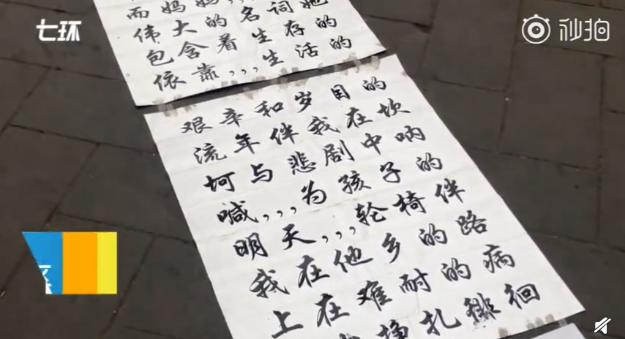 七环
秒拍
而妈妈
伟大的名词她
包含着生存的
依靠,,,生活的
艰辛和岁月的
流年伴我在坎
坷与悲剧中呐
喊,,,为孩子的
明天,,,轮椅伴
我在他乡的路
上在难耐的病
挣扎徘徊